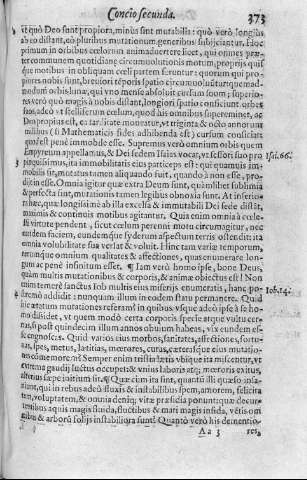 Concio secunda. 373
ut quò Deo sunt propiora, minùs sint mutabilia: quò verò longiùs
ab eo distant, eò pluribus mutationum generibus subjiciantur. Hoc
primum in orbibus cœlorum animadvertere licet, qui omnes præ-
ter communem quotidianę circumvolutionis motum, proprijs qui-
que motibus in obliquam cœli partem feruntur: quorum qui pro-
piores nobis sunt, breviori tẽporis spatio circumvolvũtur
dum orbis lunæ, qui vno mense absolvit cursum suum; superio-
res verò quò magis à nobis distant, longiori spatio conficiunt orbes
suos, adeò vt stelliferum cœlum, quod his omnibus supereminet, ac
Deo propius est, eò tardiùs moveatur, vt triginta & octo annorum
millibus (si Mathematicis fides adhibenda est) cursum conficiat
penè immobile esse. Supremus verò omnium orbis quem
Empyreum appellamus, & Dei sedem Isaias vocat, vt sessori suo pro- Isai. 66.
pinquissimus, ita immobilitatis eius particeps est: qui quamuis im-
mobilis sit, mutatus tamen aliquando fuit, quando à non esse, pro-
dijt in esse. Omnia igitur quæ extra Deum sunt, quãmlibet sublimia
& perfecta sint, mutationis tamen legibus obnoxia sunt. At inferiora
hæc, quæ longissimè ab illa excelsa & immutabili Dei sede distãt,
maximis & continuis motibus agitantur. Quia enim omnia à cœle-
sti virtute pendent, sicut cœlum perenni motu circumagitur, nec
eandem faciem, eundemque syderum aspectum terris ostendit: ita
omnia volubilitate sua versat & volvit. Hinc tam variæ temporum,
rerumque omnium qualitates & affectiones, quas enumerare lon-
gum ac penè infinitum esset. ¶ Iam verò homo ipse, bone Deus,
quàm multis mutationibus & corporis, & animæ obiectus est! Non
enim temerè sanctus Iob multis eius miserijs enumeratis, hanc po- Iob. 14.
stremò addidit: nunquam in eodem statu permanere. Quid
hic ætatum mutationes referam? in quibus vsque adeò ipse à se ho-
mo dissidet, vt quem modò certa corporis specie atque vultu cer-
nas, si post quindecim illum annos obuium habeas, vix eundem es-
se cognoscas. Quid varios eius morbos, sanitates, affectiones, fortu-
nas, spes, metus, lætitias, mœrores, curas, cæterasque eius mutatio-
nes cõmemorem? Semper enim tristia lætis vbique ita miscentur, vt
extrema gaudij luctus occupet: & vnius laboris atque mœroris exitus,
alterius sæpe initium sit. ¶ Quæ cum ita sint, quantũ illi quæso insa-
niunt, qui in rebus adeò fluxis & instabilibus spem, amorem, felicita-
tem, voluptatem, & omnia deniq; vitæ præsidia ponunt: quæ decur-
rentibus aquis magis fluida, fluctibus & mari magis infida, vẽtis om-
nibus & arborũ folijs instabiliora sunt! Quantò verò his dementio-
A a 3 res,